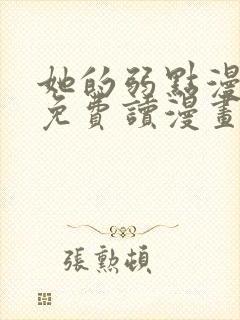 她的弱點漫
免費讀漫畫
張勲頓